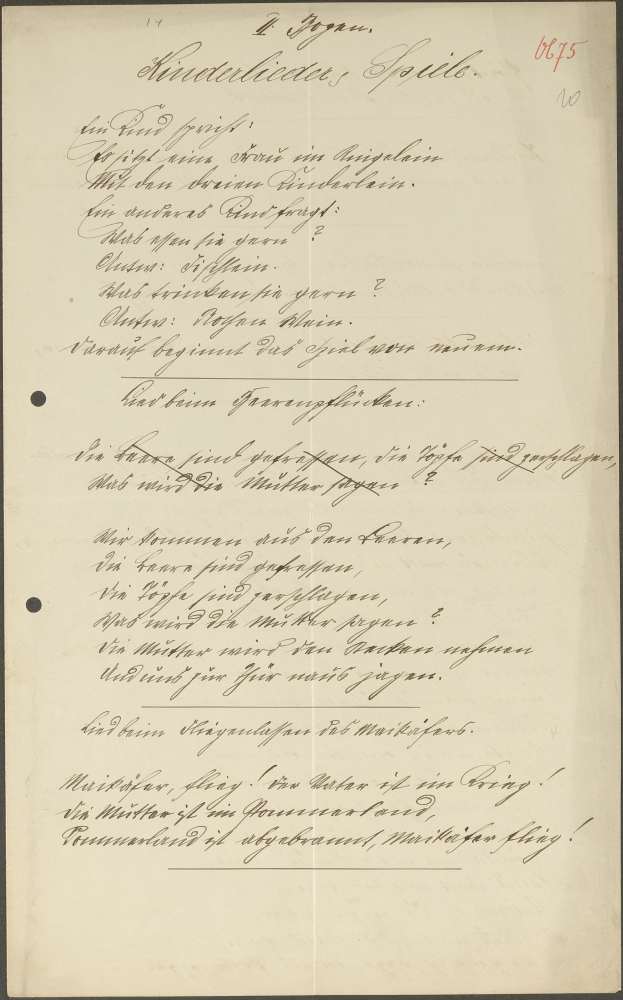 14
II. Bogen.
6675
Kinderlieder, Spiele.
20
Ein Kind spricht:
Es sitzt eine Frau im Ringelein
Mit den dreien Kinderlein.
Ein anderes Kind fragt:
Was essen sie gern?
Antw: Fischlein.
Was trinken sie gern?
Antw: Rothen Wein.
Darauf beginnt das Spiel von neuem.
Lied beim Beerenpflücken:
Die Beere sind gefressen, die Töpfe sind zerschlagen,
Was wird die Mutter sagen?
Wir kommen aus den Beeren,
Die Beere sind gefressen,
Die Töpfe sind zerschlagen,
Was wird die Mutter sagen?
Die Mutter wird den Stecken nehmen
Und uns zur Thür naus jagen.
Lied beim Fliegenlassen des Maikäfers.
Maikäfer, flieg! Der Vater ist im Krieg!
Die Mutter ist im Pommerland,
Pommerland ist abgebrannt, Maikäfer flieg!